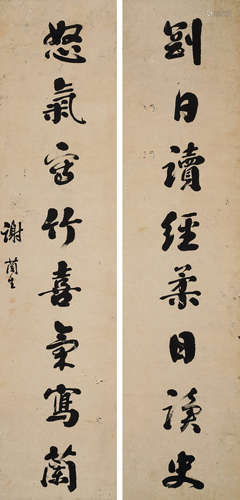 剛日讀經柔日讀史
怒氣寫竹喜氣寫蘭
謝蘭生